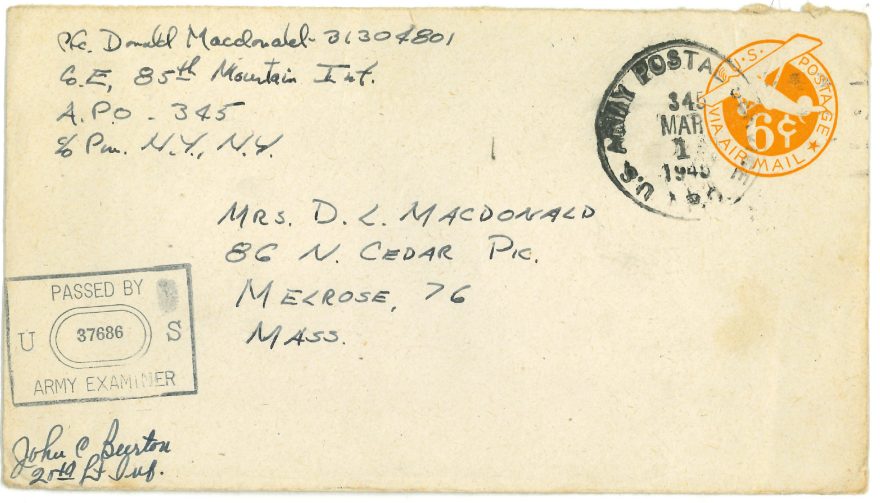 Pfc. Donald Macdonald - 31304801
Co. E, 85th Mountain Inf.
A.P.O. - 345
c/o P.m. N.Y., N.Y.
U.S. ARMY POSTAL
345
MAR
1
1945
A.P.O.
U.S. POSTAGE
6¢
VIA AIR MAIL
MRS. D. L. MACDONALD
86 N. CEDAR PK.
MELROSE, 76
MASS.
PASSED BY
U 37686 S
ARMY EXAMINER
John C Burton
2nd Lt Inf.